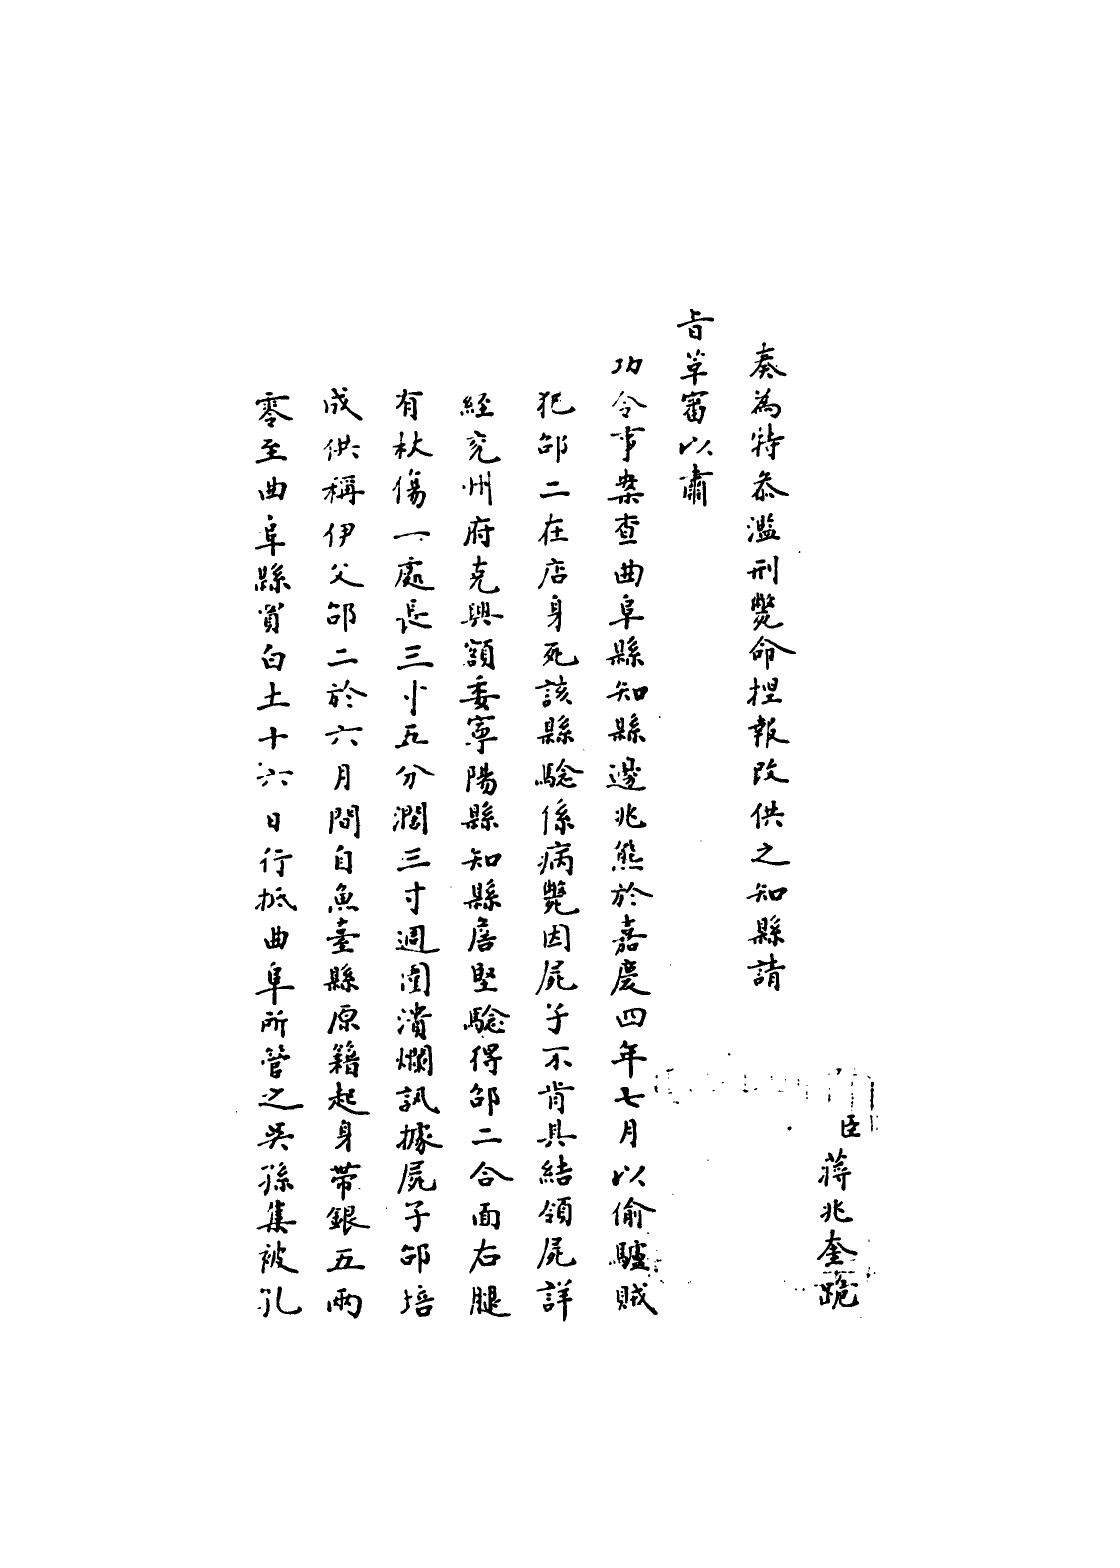 臣蔣兆奎跪
奏為特叅濫刑斃命捏報改供之知縣請
旨革審以肅
功令事案查曲阜縣知縣邊兆熊於嘉慶四年七月以偷驢賊
犯邵二在店身死該縣驗係病斃因屍子不肯具結領屍詳
經兗州府克興額委寧陽縣知縣詹堅驗得邵二合面右腿
有杖傷一處長三寸五分濶三寸週圍潰爛訊據屍子邵培
成供稱伊父邵二於六月間自魚臺縣原籍起身帶銀五兩
零至曲阜縣買白土十六日行抵曲阜所管之吳孫集被孔